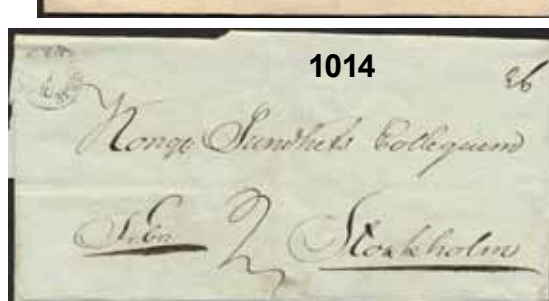 1014
26
Kongl Sundhets Collegium
Fr. En. 2 Stockholm